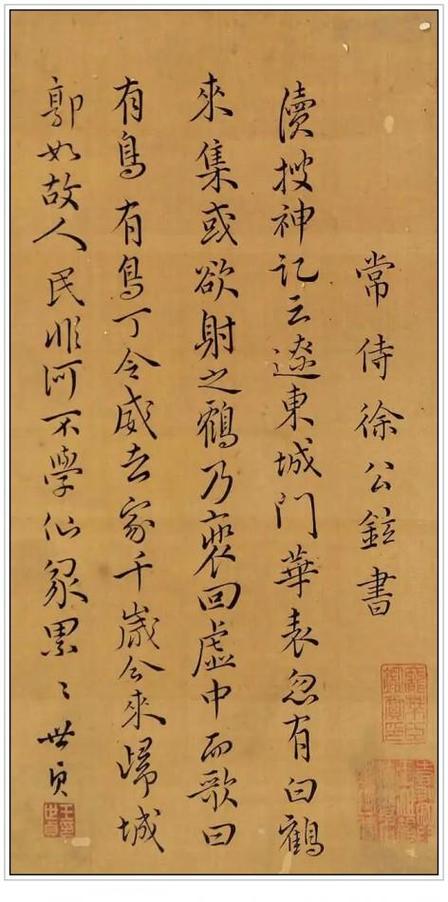 常侍徐公鉉書
續搜神記云遼東城門華表忽有白鶴
來集或欲射之鶴乃裵回虛中而歌曰
有鳥有鳥丁令威去家千歲今來歸城
郭如故人民非何不學仙冢累〻世貞